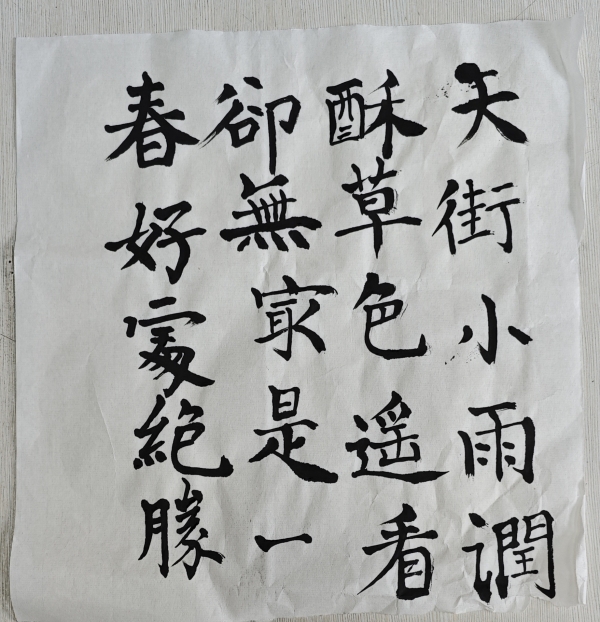 天街小雨潤
酥草色遥看
卻無㝡是一
春好處絶勝